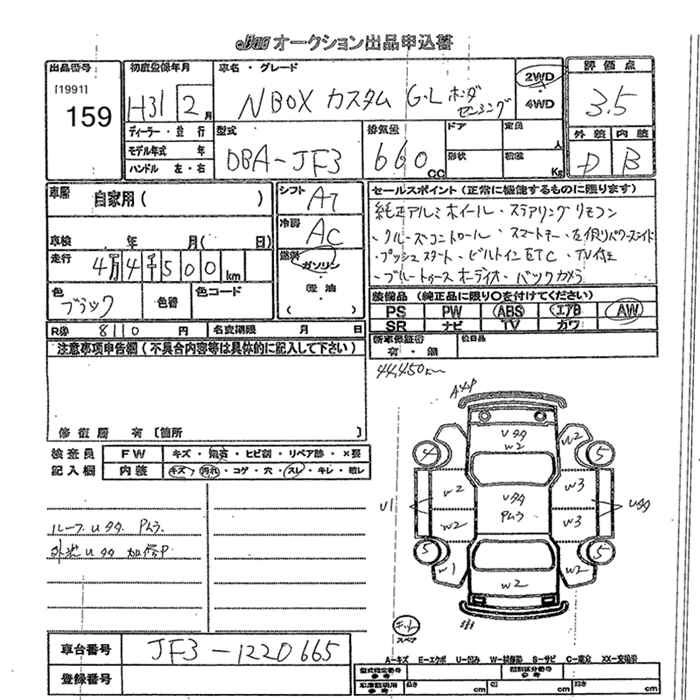 オークション出品申込書
出品番号
[1991]
159
初度登録年月
H31 2月
ディーラー・並行
モデル年式 年
ハンドル 左・右
車名・グレード
N BOX カスタム G・L ホンダ
センシング
2WD
・
4WD
評価点
3.5
外装 内装
D B
型式
DBA-JF3
排気量
660 CC
ドア
形状
定員
人
積載
Kg
車歴 自家用( )
車検 年 月( 日)
走行 4万4千500km
色
ブラック
色替
色コード
シフト AT
冷房 AC
燃料
ガソリン
・
軽油
( )
セールスポイント(正常に機能するものに限ります)
純正アルミホイール・ステアリングリモコン
・クルーズコントロール・スマートキー・左側パワースライド
・プッシュスタート・ビルトインETC・TV付
・ブルートゥースオーディオ・バックカメラ
装備品(純正品に限り○を付けてください)
PS PW ABS エアB AW
SR ナビ TV カワ
R券 8110 円 名変期限 月 日
新車保証書
有・無
44,450km
注意事項申告欄(不具合内容等は具体的に記入して下さい)
修復歴 有〔箇所 〕
検査員
記入欄
FW キズ・飛石・ヒビ割・リペア跡・×要
内装 キズ・汚れ・コゲ・穴・スレ・キレ・
ルーフUタタ Pムラ
A4P
Uタタ
W2
W2
4
5
W2
W3
U1
Uタタ
Pムラ
Uタタ
W2
W3
5
5
W1
W2
W2
スペア
車台番号 JF3-1220665
登録番号
A-キズ E-エクボ U-凹み W-補修跡 S-サビ C-腐食 XX-交換済
cm cm cm